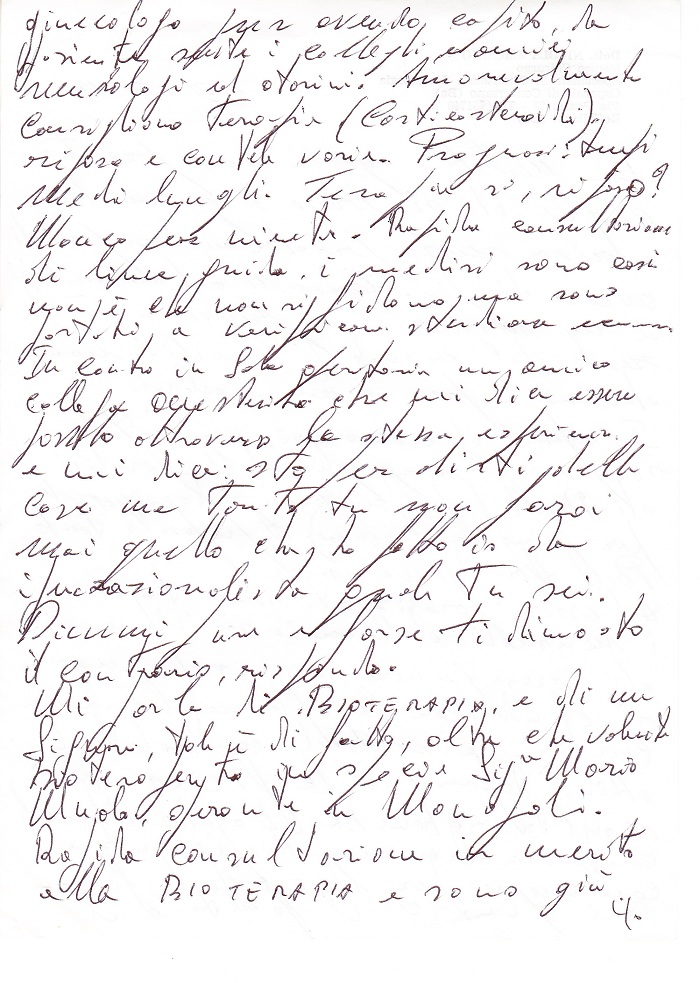 ginecologo pur avendo capito, da
paziente sente i colleghi e amici
neurologi ed otorini. Amorevolmente
Consigliano Terapia (Corticosteroidi),
riposo e controlli vari. Prognosi: tempi
medi lunghi. Terapia si, riposo?
Manco per niente. Rapida consultazione
di linee guida, i medici sono così
non è che non si fidano, ma sono
portati a verificare
Incontro in Sala operatoria un amico
collega anestesista che mi dice essere
passato attraverso la stessa esperienza
e mi dice: sto per dirti delle
cose ma tanto tu non farai
mai quello che ho fatto io da
irrazionalista quale Tu sei.
Dimmi pure e forse ti dimostro
il contrario, rispondo.
Mi parla di BIOTERAPIA, e di un
Signore, tale è di fatto, oltre che valente
bioterapeuta in specie Sigr Mario
operante in Monopoli.
Rapida consultazione in merito
alla BIOTERAPIA e sono già